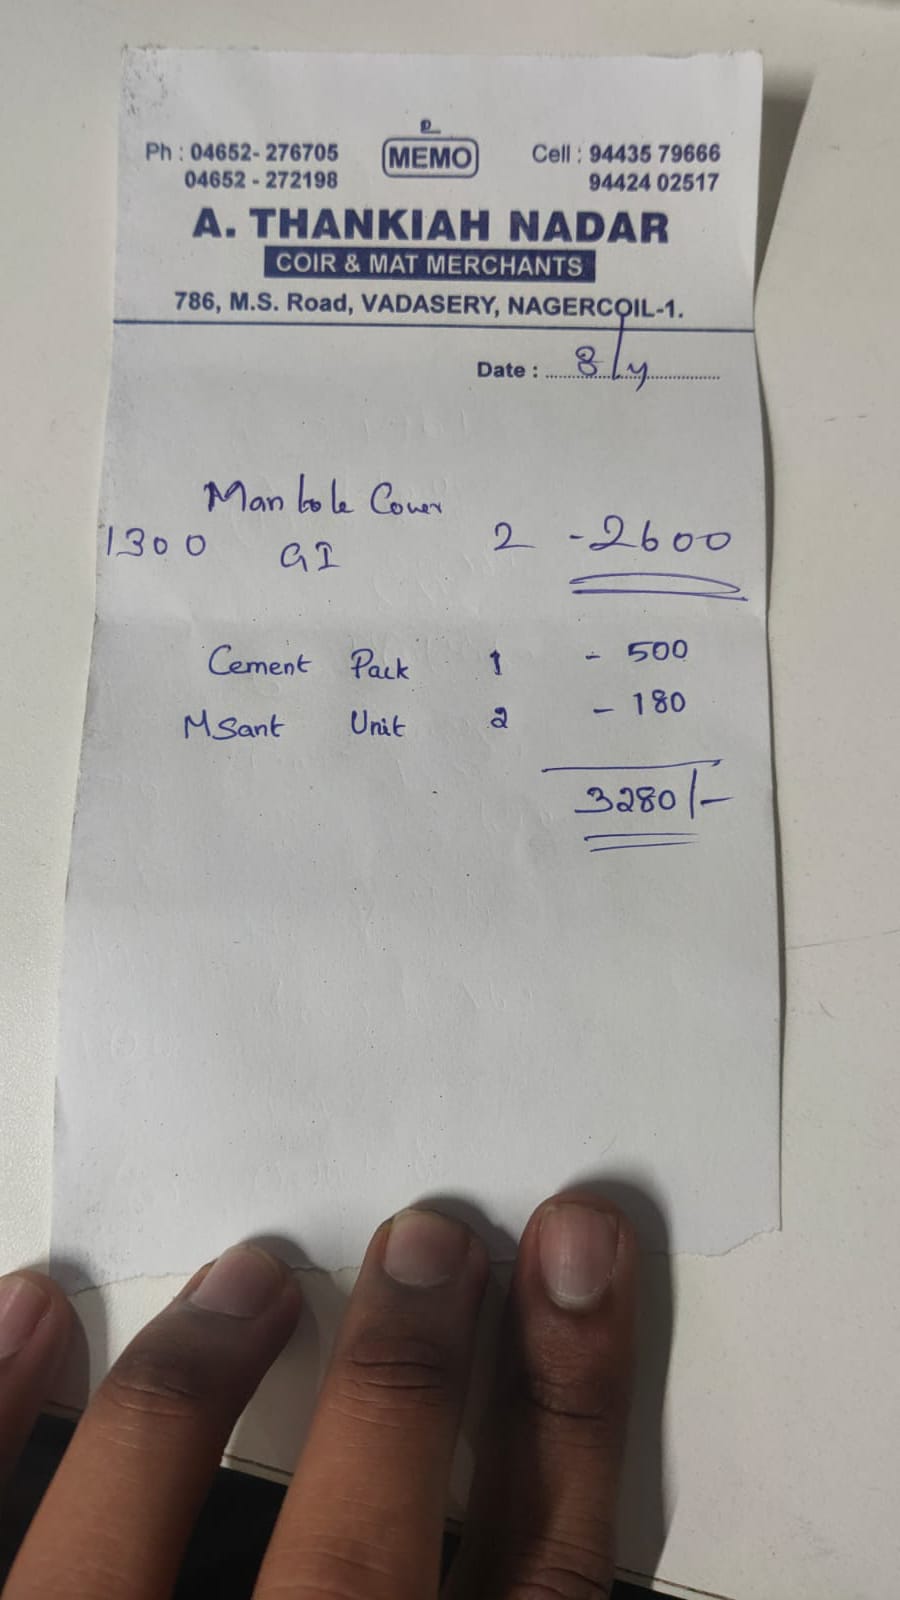 உ
Ph : 04652- 276705 MEMO Cell : 94435 79666
04652 - 272198 94424 02517
A. THANKIAH NADAR
COIR & MAT MERCHANTS
786, M.S. Road, VADASERY, NAGERCOIL-1.
Date : 8/4
Manhole Cover
1300 GI 2 - 2600
Cement Pack 1 - 500
MSant Unit 2 - 180
3280/-